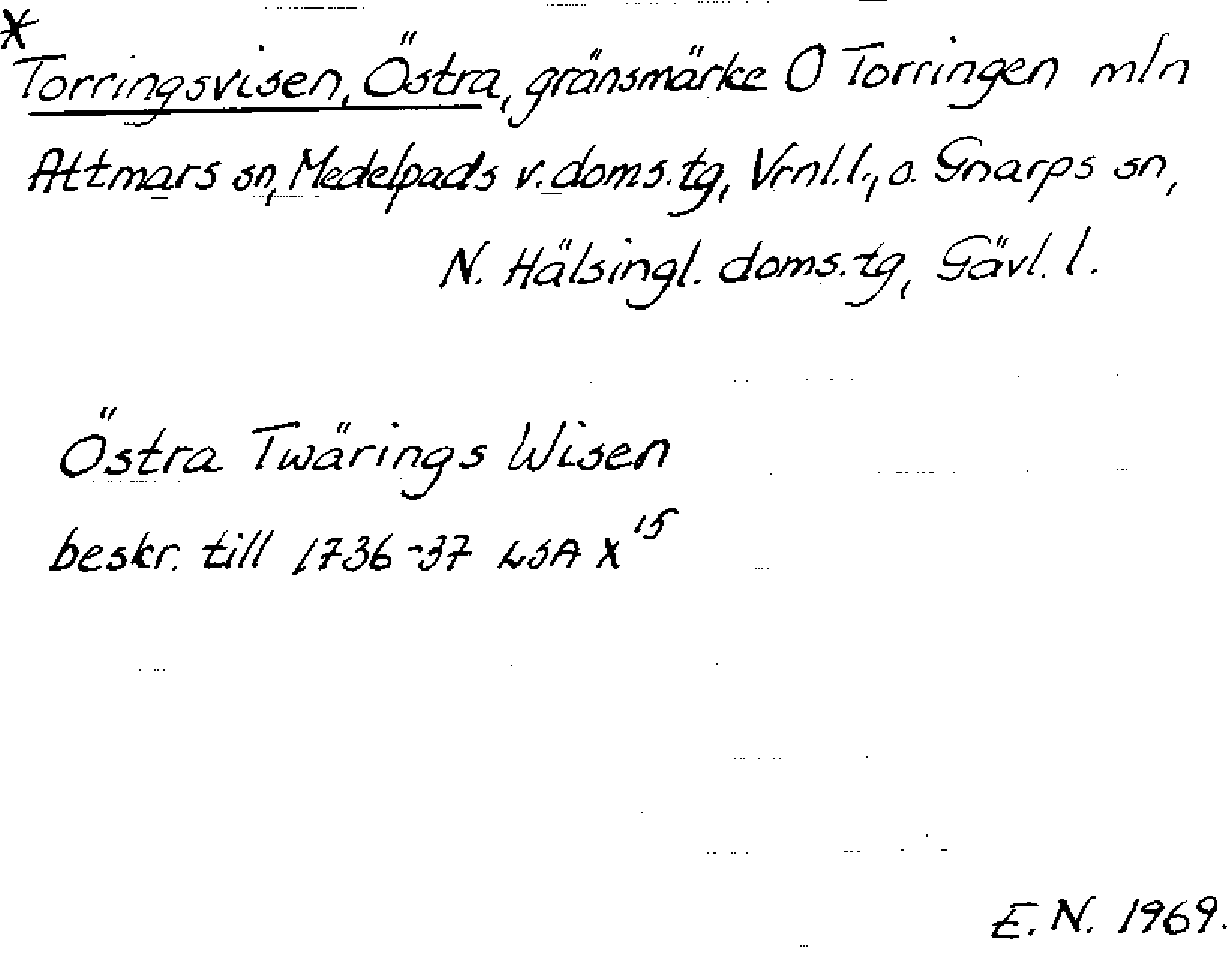 *
Torringsvisen, Östra, gränsmärke O Torringen mln
Attmars sn, Medelpads v. doms.tg, Vrnl.l., o. Gnarps sn,
N. Hälsingl. doms.tg, Gävl. l.
Östra Twärings Wisen
beskr. till 1736-37 LSA X¹⁵
E. N. 1969.